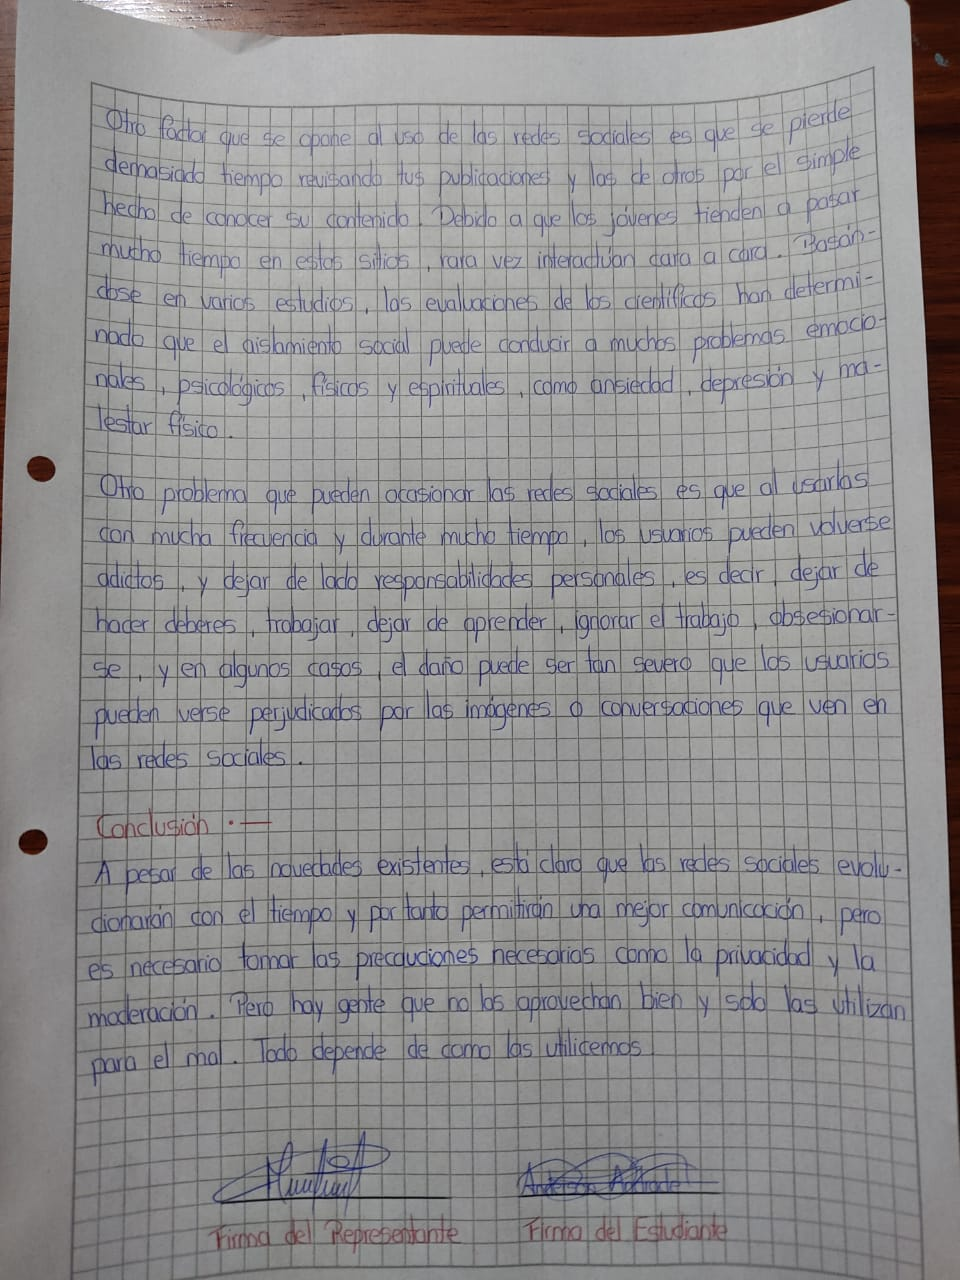 Otro factor que se opone al uso de las redes sociales es que se pierde
demasiado tiempo revisando tus publicaciones y las de otros por el simple
hecho de conocer su contenido. Debido a que los jóvenes tienden a pasar
mucho tiempo en estos sitios, rara vez interactúan cara a cara. Basán-
dose en varios estudios, las evaluaciones de los científicos han determi-
nado que el aislamiento social puede conducir a muchos problemas emocio-
nales, psicológicos, físicos y espirituales, como ansiedad, depresión y ma-
lestar físico.
Otro problema que pueden ocasionar las redes sociales es que al usarlas
con mucha frecuencia y durante mucho tiempo, los usuarios pueden volverse
adictos, y dejar de lado responsabilidades personales, es decir, dejar de
hacer deberes, trabajar, dejar de aprender, ignorar el trabajo, obsesionar-
se, y en algunos casos, el daño puede ser tan severo que los usuarios
pueden verse perjudicados por las imágenes o conversaciones que ven en
las redes sociales.
Conclusión.-
A pesar de las novedades existentes, está claro que las redes sociales evolu-
cionarán con el tiempo y por tanto permitirán una mejor comunicación, pero
es necesario tomar las precauciones necesarias como la privacidad y la
moderación. Pero hay gente que no los aprovechan bien y solo las utilizan
para el mal. Todo depende de como las utilicemos
Firma del Representante Firma del Estudiante